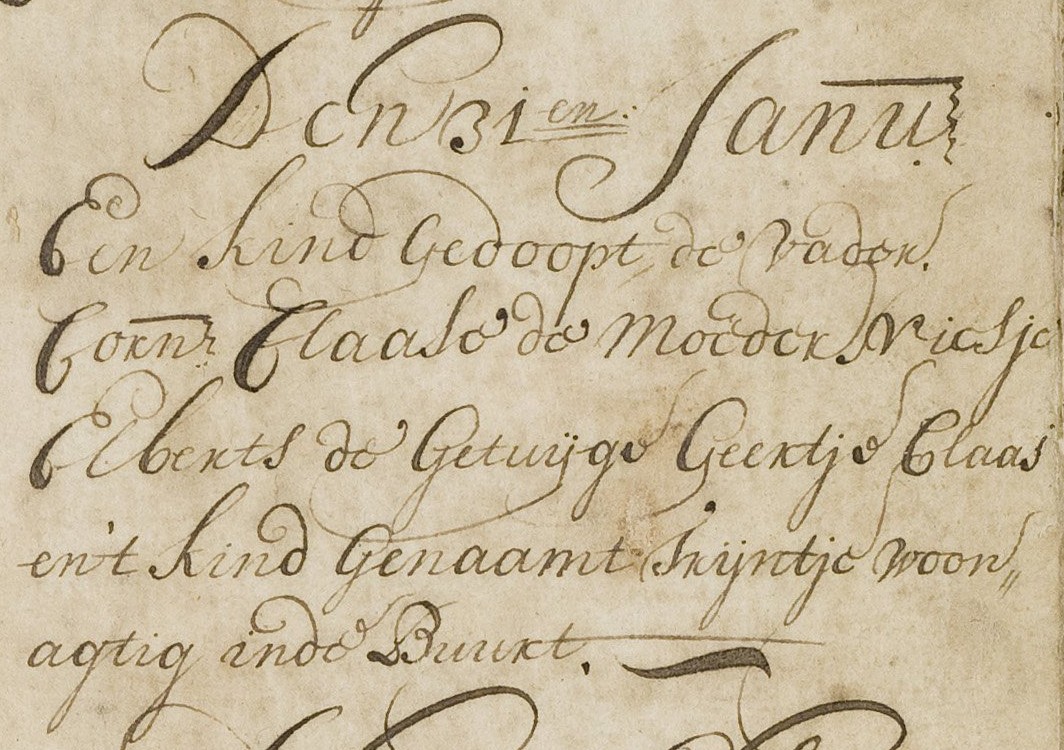 Den 31en. Janu
Een kind Gedoopt de Vader.
Corn: Claase de Moeder Niesje
Elberts de Getuijge Geertje Claas
en't kind Genaamt Trijntje woon„
agtig inde Buurt.